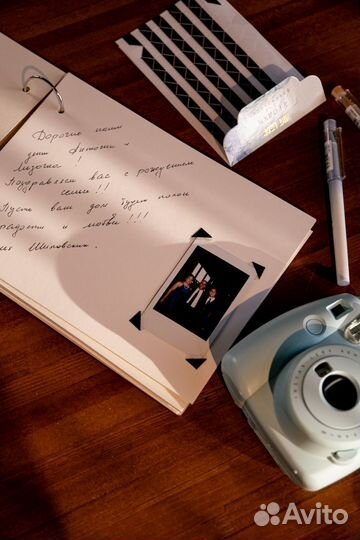 Дорогие наши
дети Антоша и
Лизочка!
Поздравляем вас с рождением
семьи!!!
Пусть ваш дом будет полон
радости и любви!!!
Шиповских.
Avito